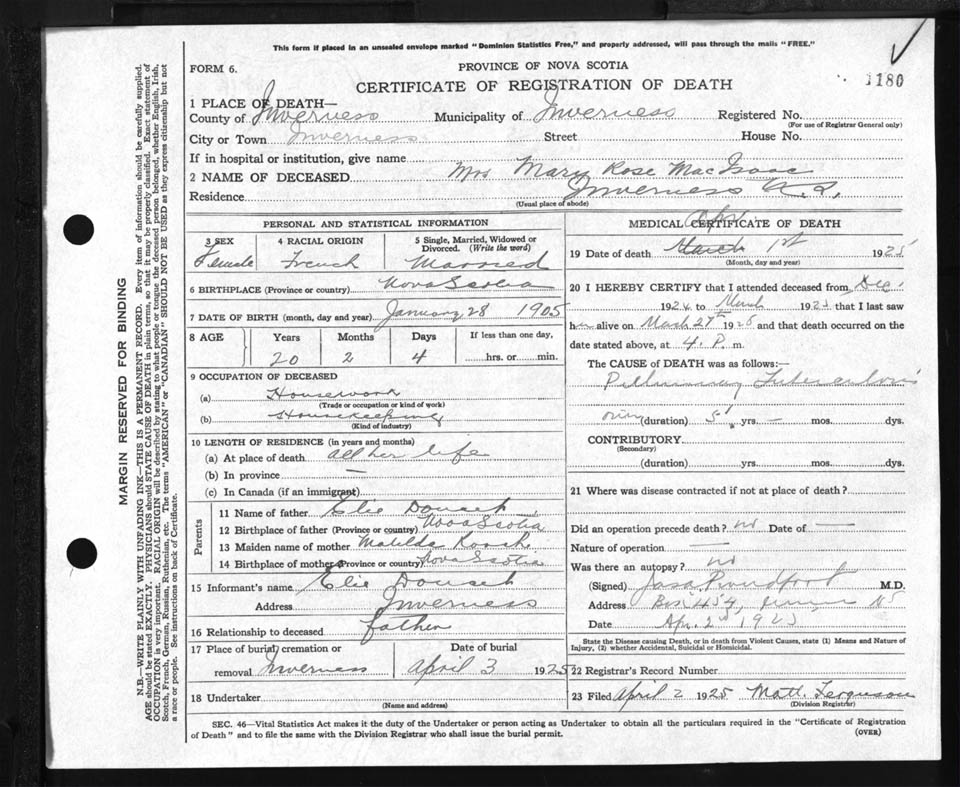 This form if placed in an unsealed envelope marked "Dominion Statistics Free," and properly addressed, will pass through the mails "FREE."
FORM 6.
PROVINCE OF NOVA SCOTIA
CERTIFICATE OF REGISTRATION OF DEATH
1180
1 PLACE OF DEATH—
County of Inverness Municipality of Inverness Registered No.
(For use of Registrar General only)
City or Town Inverness Street House No.
If in hospital or institution, give name
2 NAME OF DECEASED Mrs Mary Rose MacIsaac
Residence Inverness
(Usual place of abode)
PERSONAL AND STATISTICAL INFORMATION
3 SEX 4 RACIAL ORIGIN 5 Single, Married, Widowed or Divorced. (Write the word)
Female French Married
6 BIRTHPLACE (Province or country) Nova Scotia
7 DATE OF BIRTH (month, day and year) January 28 1905
8 AGE Years Months Days If less than one day,
20 2 4 hrs. or min.
9 OCCUPATION OF DECEASED
(a) Housework
(Trade or occupation or kind of work)
(b) Housekeeping
(Kind of industry)
10 LENGTH OF RESIDENCE (in years and months)
(a) At place of death all her life
(b) In province —
(c) In Canada (if an immigrant)
Parents
11 Name of father Elie Doucet
12 Birthplace of father (Province or country) Nova Scotia
13 Maiden name of mother Matilda
14 Birthplace of mother (Province or country) Nova Scotia
15 Informant's name Elie Doucet
Address Inverness
16 Relationship to deceased father
17 Place of burial, cremation or Date of burial
removal Inverness April 3 1925
18 Undertaker
(Name and address)
MEDICAL CERTIFICATE OF DEATH
Apr.
19 Date of death March 1st 1925
(Month, day and year)
20 I HEREBY CERTIFY that I attended deceased from Dec.
1924 to March 1925 that I last saw
her alive on March 27th 1925 and that death occurred on the
date stated above, at 4. P. m.
The CAUSE of DEATH was as follows:—
Pulmonary Tuberculosis
(duration) yrs. — mos. dys.
CONTRIBUTORY
(Secondary)
(duration) yrs. mos. dys.
21 Where was disease contracted if not at place of death?
Did an operation precede death? no Date of —
Nature of operation —
Was there an autopsy? no
(Signed) Jas. Proudfoot M.D.
Address Box 454, NS
Date Apr. 2nd 1925
State the Disease causing Death, or in death from Violent Causes, state (1) Means and Nature of Injury, (2) whether Accidental, Suicidal or Homicidal.
22 Registrar's Record Number
23 Filed April 2 1925 Matt. Ferguson
(Division Registrar)
SEC. 46—Vital Statistics Act makes it the duty of the Undertaker or person acting as Undertaker to obtain all the particulars required in the "Certificate of Registration
of Death" and to file the same with the Division Registrar who shall issue the burial permit.
(OVER)
MARGIN RESERVED FOR BINDING
N.B.—WRITE PLAINLY WITH UNFADING INK—THIS IS A PERMANENT RECORD. Every item of information should be carefully supplied.
AGE should be stated EXACTLY. PHYSICIANS should STATE CAUSE OF DEATH in plain terms, so that it may be properly classified. Exact statement of
OCCUPATION is very important. RACIAL ORIGIN will be described by stating to what people or tongue the deceased person belonged, whether English, Irish,
Scotch, French, German, Russian, Ruthenian, etc. The terms "AMERICAN" or "CANADIAN" SHOULD NOT BE USED as they express citizenship but not
a race or people. See instructions on back of Certificate.